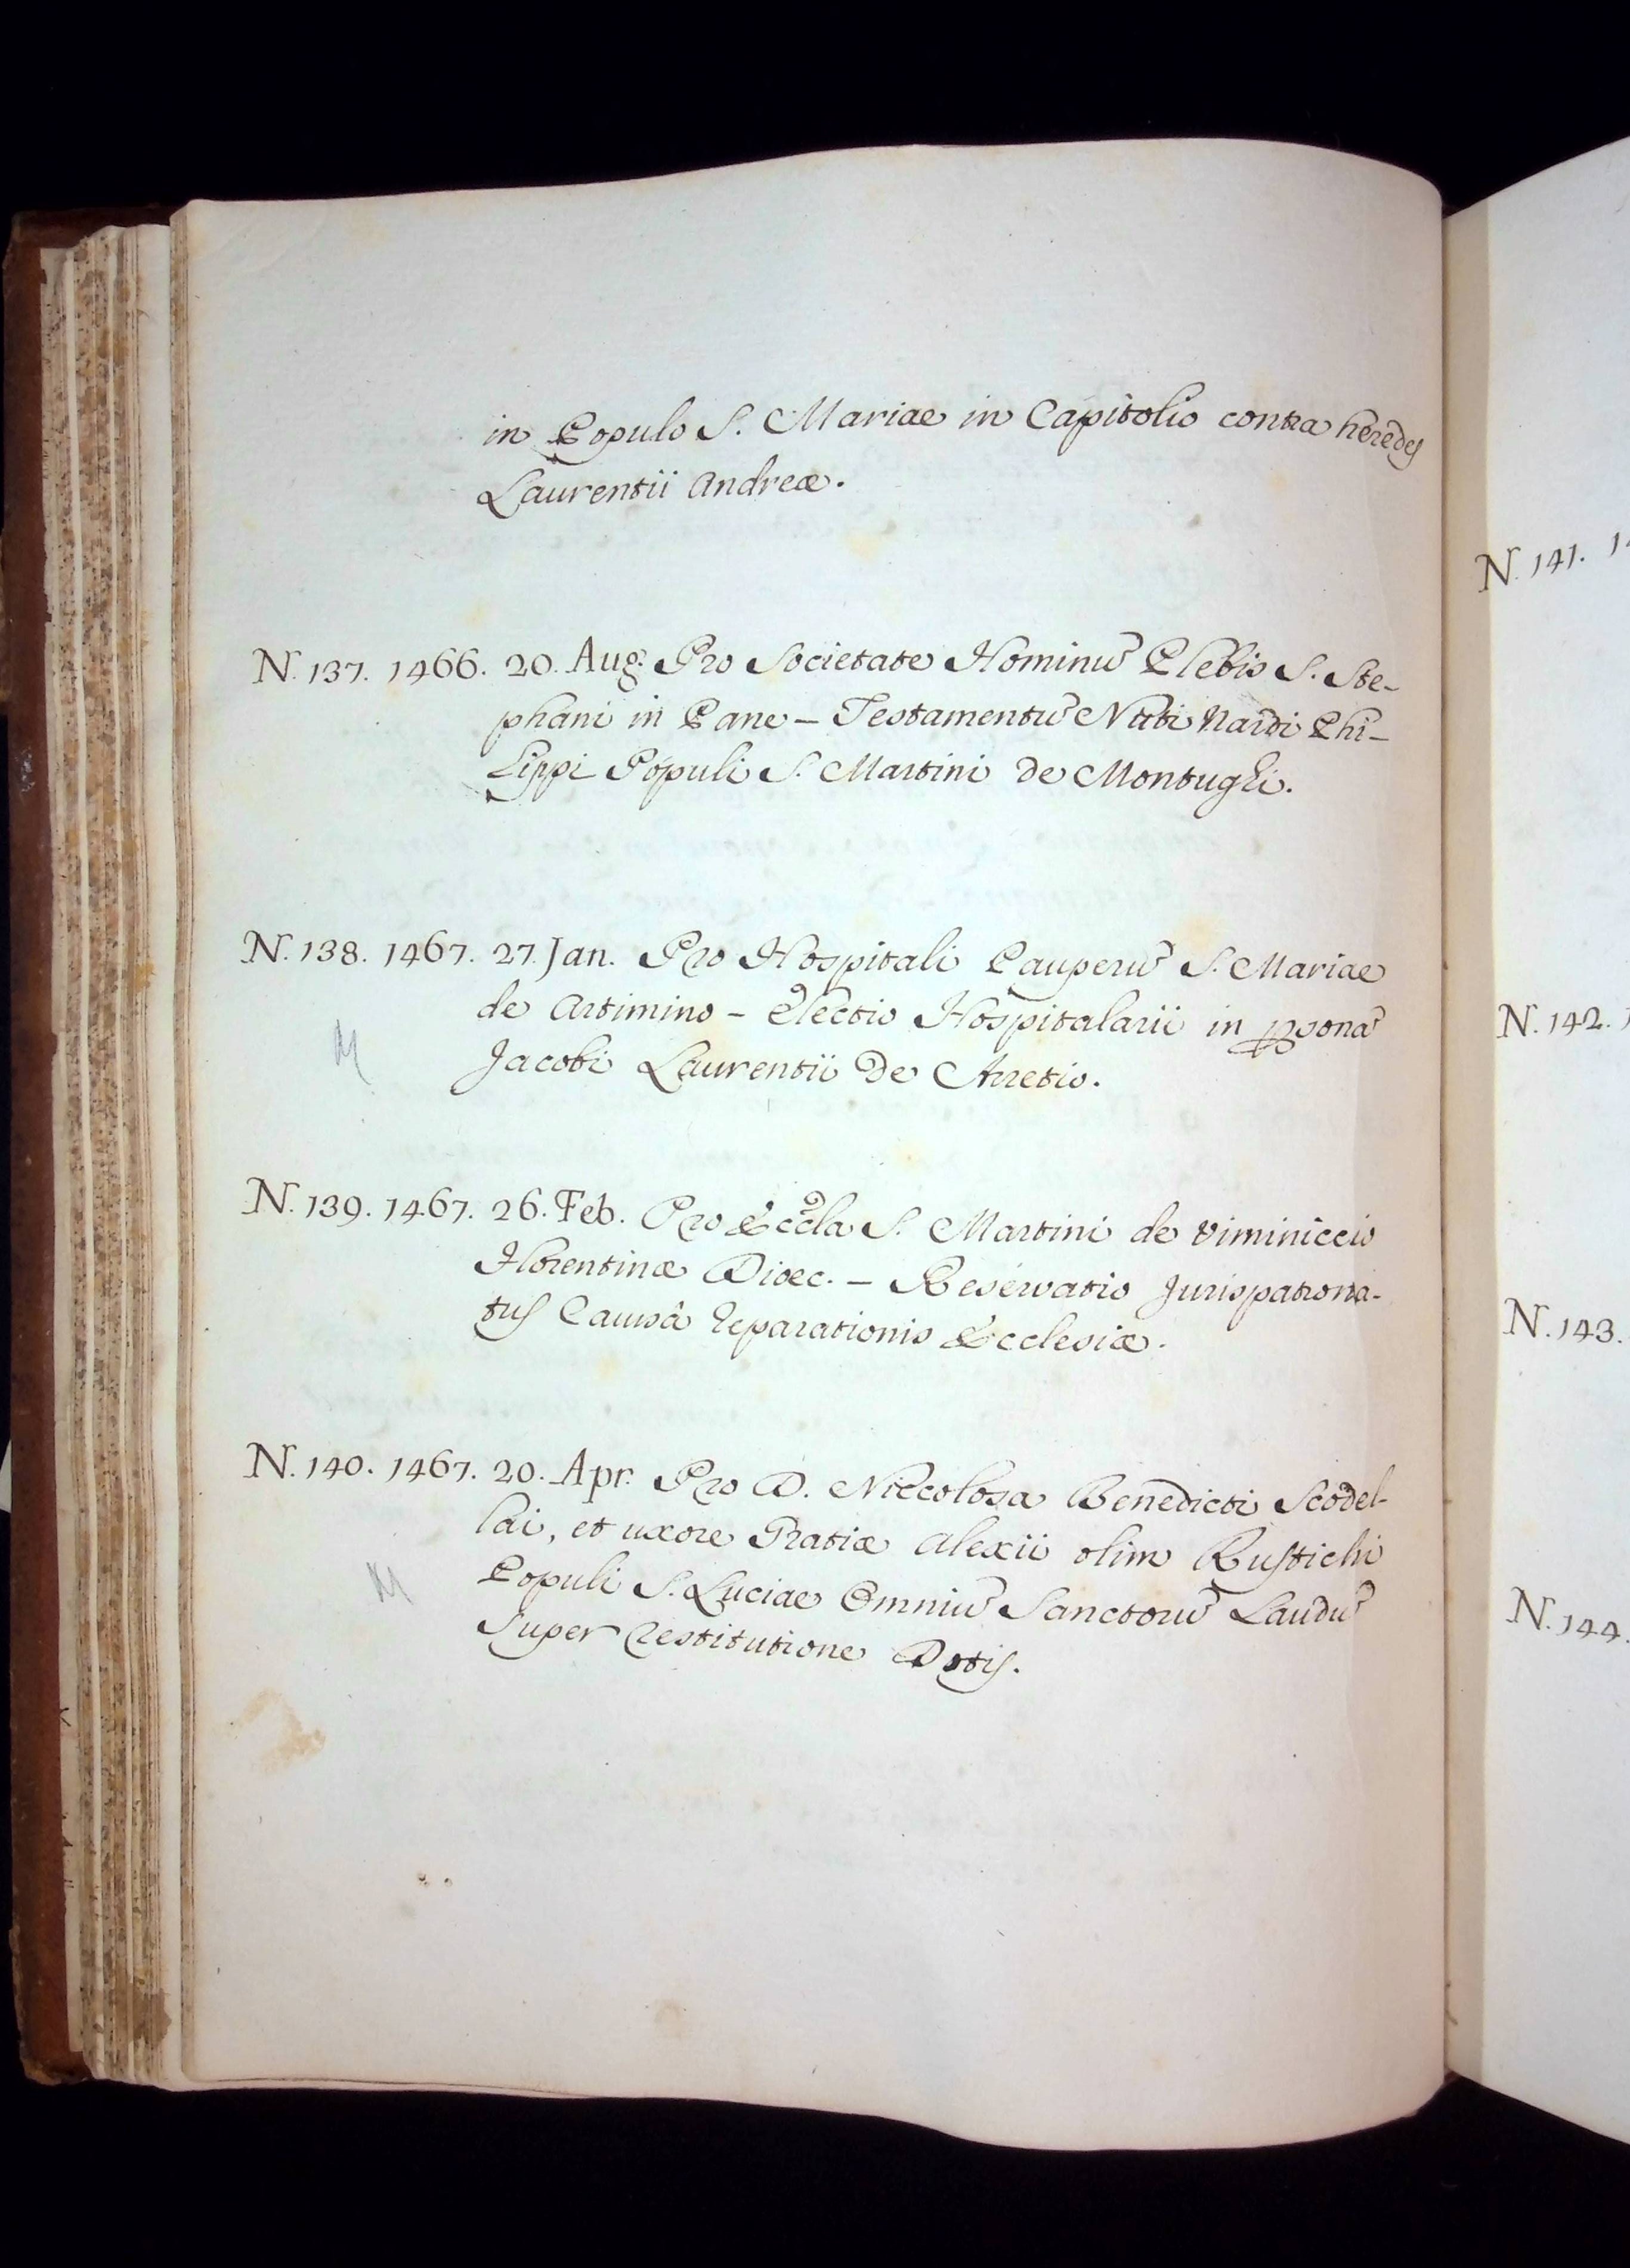 in Populo S. Mariae in Capitolio contra heredes
Laurentii Andreæ.
N. 137. 1466. 20. Aug. Pro Societate Hominū Plebis S. Ste-
phani in Pane – Testamentū Nuti Nardi Phi-
lippi Populi S. Martini de Montughi.
N. 138. 1467. 27. Jan. Pro Hospitali Pauperū S. Mariae
de Artimino – Electio Hospitalarii in psonā
Jacobi Laurentii de Arretio.
M
N. 139. 1467. 26. Feb. Pro Eccla S. Martini de Viminiccio
Florentinæ Dioec. – Reservatio Jurispatrona-
tus Causâ reparationis Ecclesiæ.
N. 140. 1467. 20. Apr. Pro D. Niccolosa Benedicti Scodel-
lai, et uxore Gratiæ Alexii olim Rustichi
Populi S. Luciae Omniū Sanctorū Laudū
super restitutione Dotis.
M
N. 141. 1
N. 142. 1
N. 143.
N. 144.